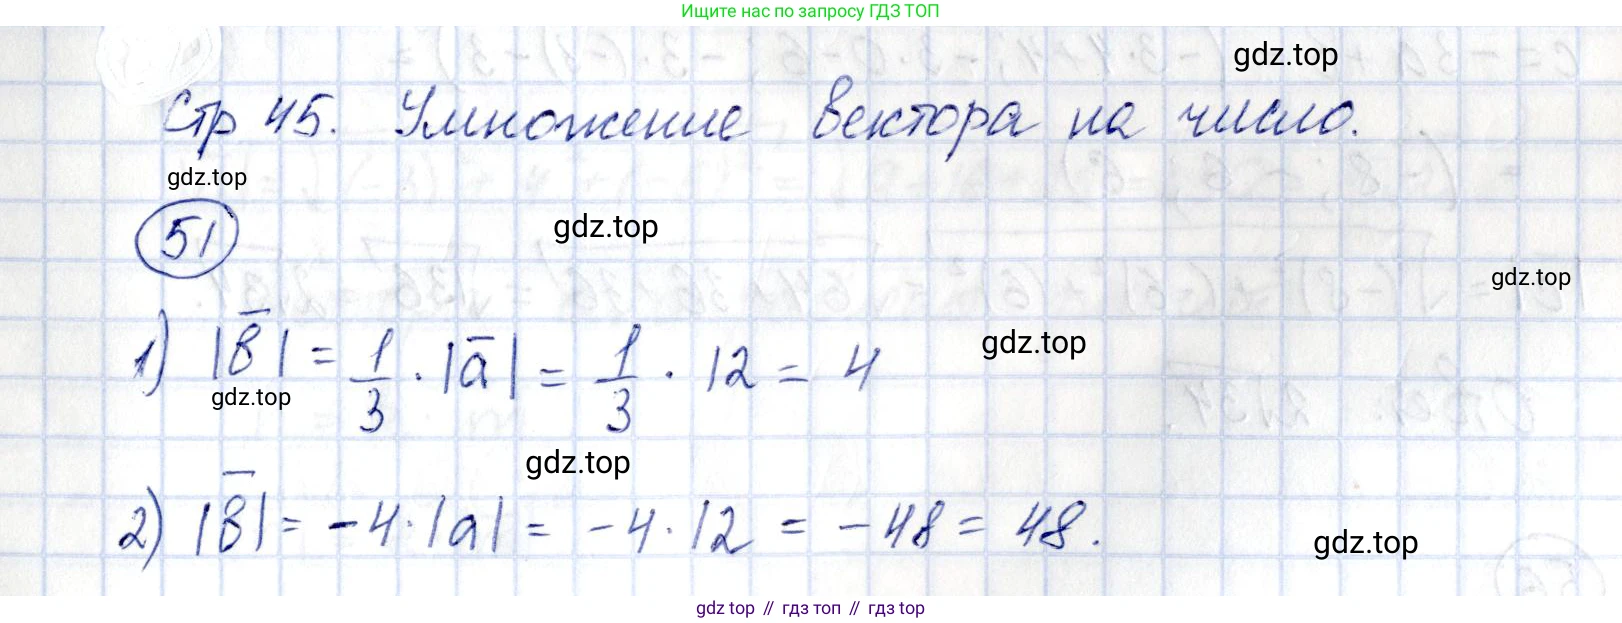 Ищите нас по запросу ГДЗ ТОП
gdz.top
Стр 45. Умножение вектора на число.
gdz.top
51
gdz.top
gdz.top
1) |b̅| = 1/3 · |a̅| = 1/3 · 12 = 4
gdz.top
gdz.top
gdz.top
2) |b̅| = -4 · |a| = -4 · 12 = -48 = 48.
gdz.top
gdz top // гдз топ // гдз top